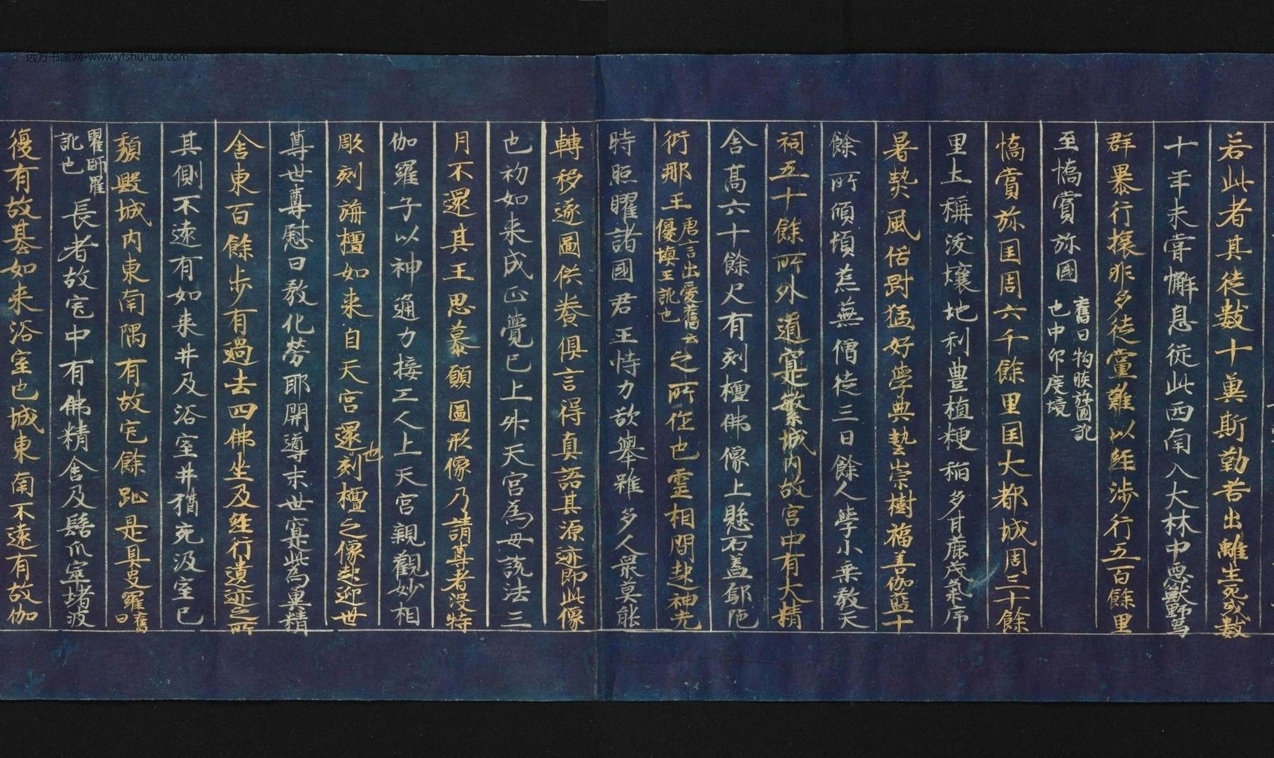 远方书画网-www.yfshuhua.com
若此者其徒数十万斯勤苦出離生死或数
十年未甞懈息從此西南入大林中惡獸野爲
群暴行攘非多徒黨難以經渉行五百餘里
至憍賞弥國舊曰拘睒弥國訛也中印度境
憍賞弥國周六千餘里國大都城周三十餘
里上稱渡壤地利豊植粳稲多甘蔗茂氣序
暑熱風俗尉猛好學典藝崇樹福善伽藍十
餘所傾頓荒蕪僧徒三百餘人學小乗教天
祠五十餘所外道寔繁城内故宮中有大精
舎高六十餘尺有刻檀佛像上懸石盖鄔陁
衍那王唐言出愛舊云優填王訛也之所作也霊相間起神光
時照曜諸國君王恃力欲擧雖多人衆莫能
轉移遂圖供養倶言得真語其源迹即此像
也初如来成正覺已上外天宮爲母説法三
月不還其王思慕願圖形像乃請尊者没特
伽羅子以神通力接工人上天宮親觀妙相
彫刻旃檀如来自天宮還也刻檀之像起迎世
尊世尊慰曰教化勞耶開導末世寔此爲冀精
舎東百餘歩有過去四佛坐及經行遺迹之所
其側不遠有如来井及浴室井猶充汲室已
頽毀城内東南隅有故宅餘趾是具史羅舊曰
瞿師羅訛也長者故宅中有佛精舎及髻爪窣堵波
復有故基如来浴室也城東南不遠有故伽